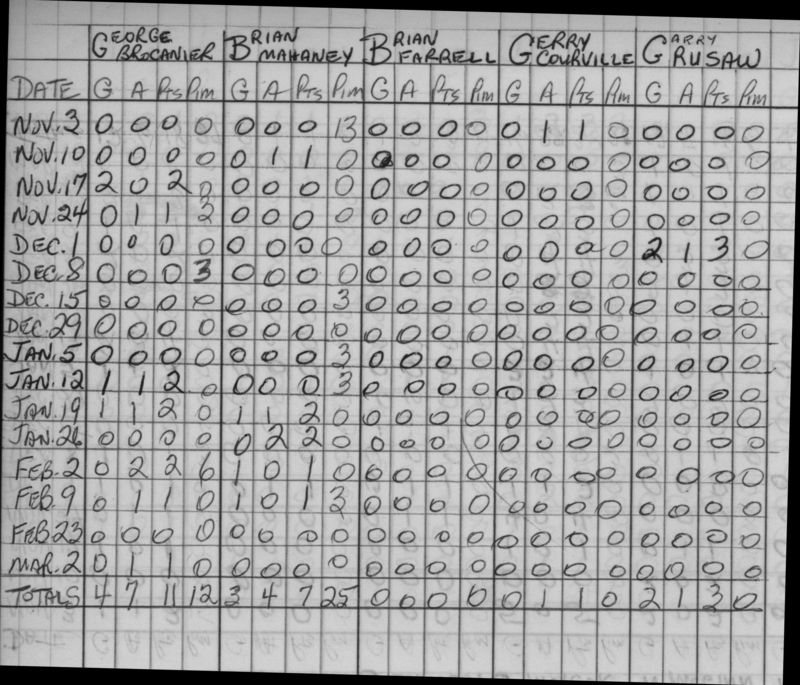 GEORGE BROCANIER BRIAN MAHANEY BRIAN FARRELL GERRY COURVILLE GARRY RUSAW
DATE G A Pts Pim G A Pts Pim G A Pts Pim G A Pts Pim G A Pts Pim
NOV. 3 0 0 0 0 0 0 0 13 0 0 0 0 0 1 1 0 0 0 0 0
NOV. 10 0 0 0 0 0 1 1 0 0 0 0 0 0 0 0 0 0 0 0 0
NOV. 17 2 0 2 0 0 0 0 0 0 0 0 0 0 0 0 0 0 0 0 0
NOV. 24 0 1 1 3 0 0 0 0 0 0 0 0 0 0 0 0 0 0 0 0
DEC. 1 0 0 0 0 0 0 0 0 0 0 0 0 0 0 0 0 2 1 3 0
DEC. 8 0 0 0 3 0 0 0 0 0 0 0 0 0 0 0 0 0 0 0 0
DEC. 15 0 0 0 0 0 0 0 3 0 0 0 0 0 0 0 0 0 0 0 0
DEC. 29 0 0 0 0 0 0 0 0 0 0 0 0 0 0 0 0 0 0 0 0
JAN. 5 0 0 0 0 0 0 0 3 0 0 0 0 0 0 0 0 0 0 0 0
JAN. 12 1 1 2 0 0 0 0 3 0 0 0 0 0 0 0 0 0 0 0 0
JAN. 19 1 1 2 0 1 1 2 0 0 0 0 0 0 0 0 0 0 0 0 0
JAN. 26 0 0 0 0 0 2 2 0 0 0 0 0 0 0 0 0 0 0 0 0
FEB. 2 0 2 2 6 1 0 1 0 0 0 0 0 0 0 0 0 0 0 0 0
FEB. 9 0 1 1 0 1 0 1 3 0 0 0 0 0 0 0 0 0 0 0 0
FEB 23 0 0 0 0 0 0 0 0 0 0 0 0 0 0 0 0 0 0 0 0
MAR. 2 0 1 1 0 0 0 0 0 0 0 0 0 0 0 0 0 0 0 0 0
TOTALS 4 7 11 12 3 4 7 25 0 0 0 0 0 1 1 0 2 1 3 0